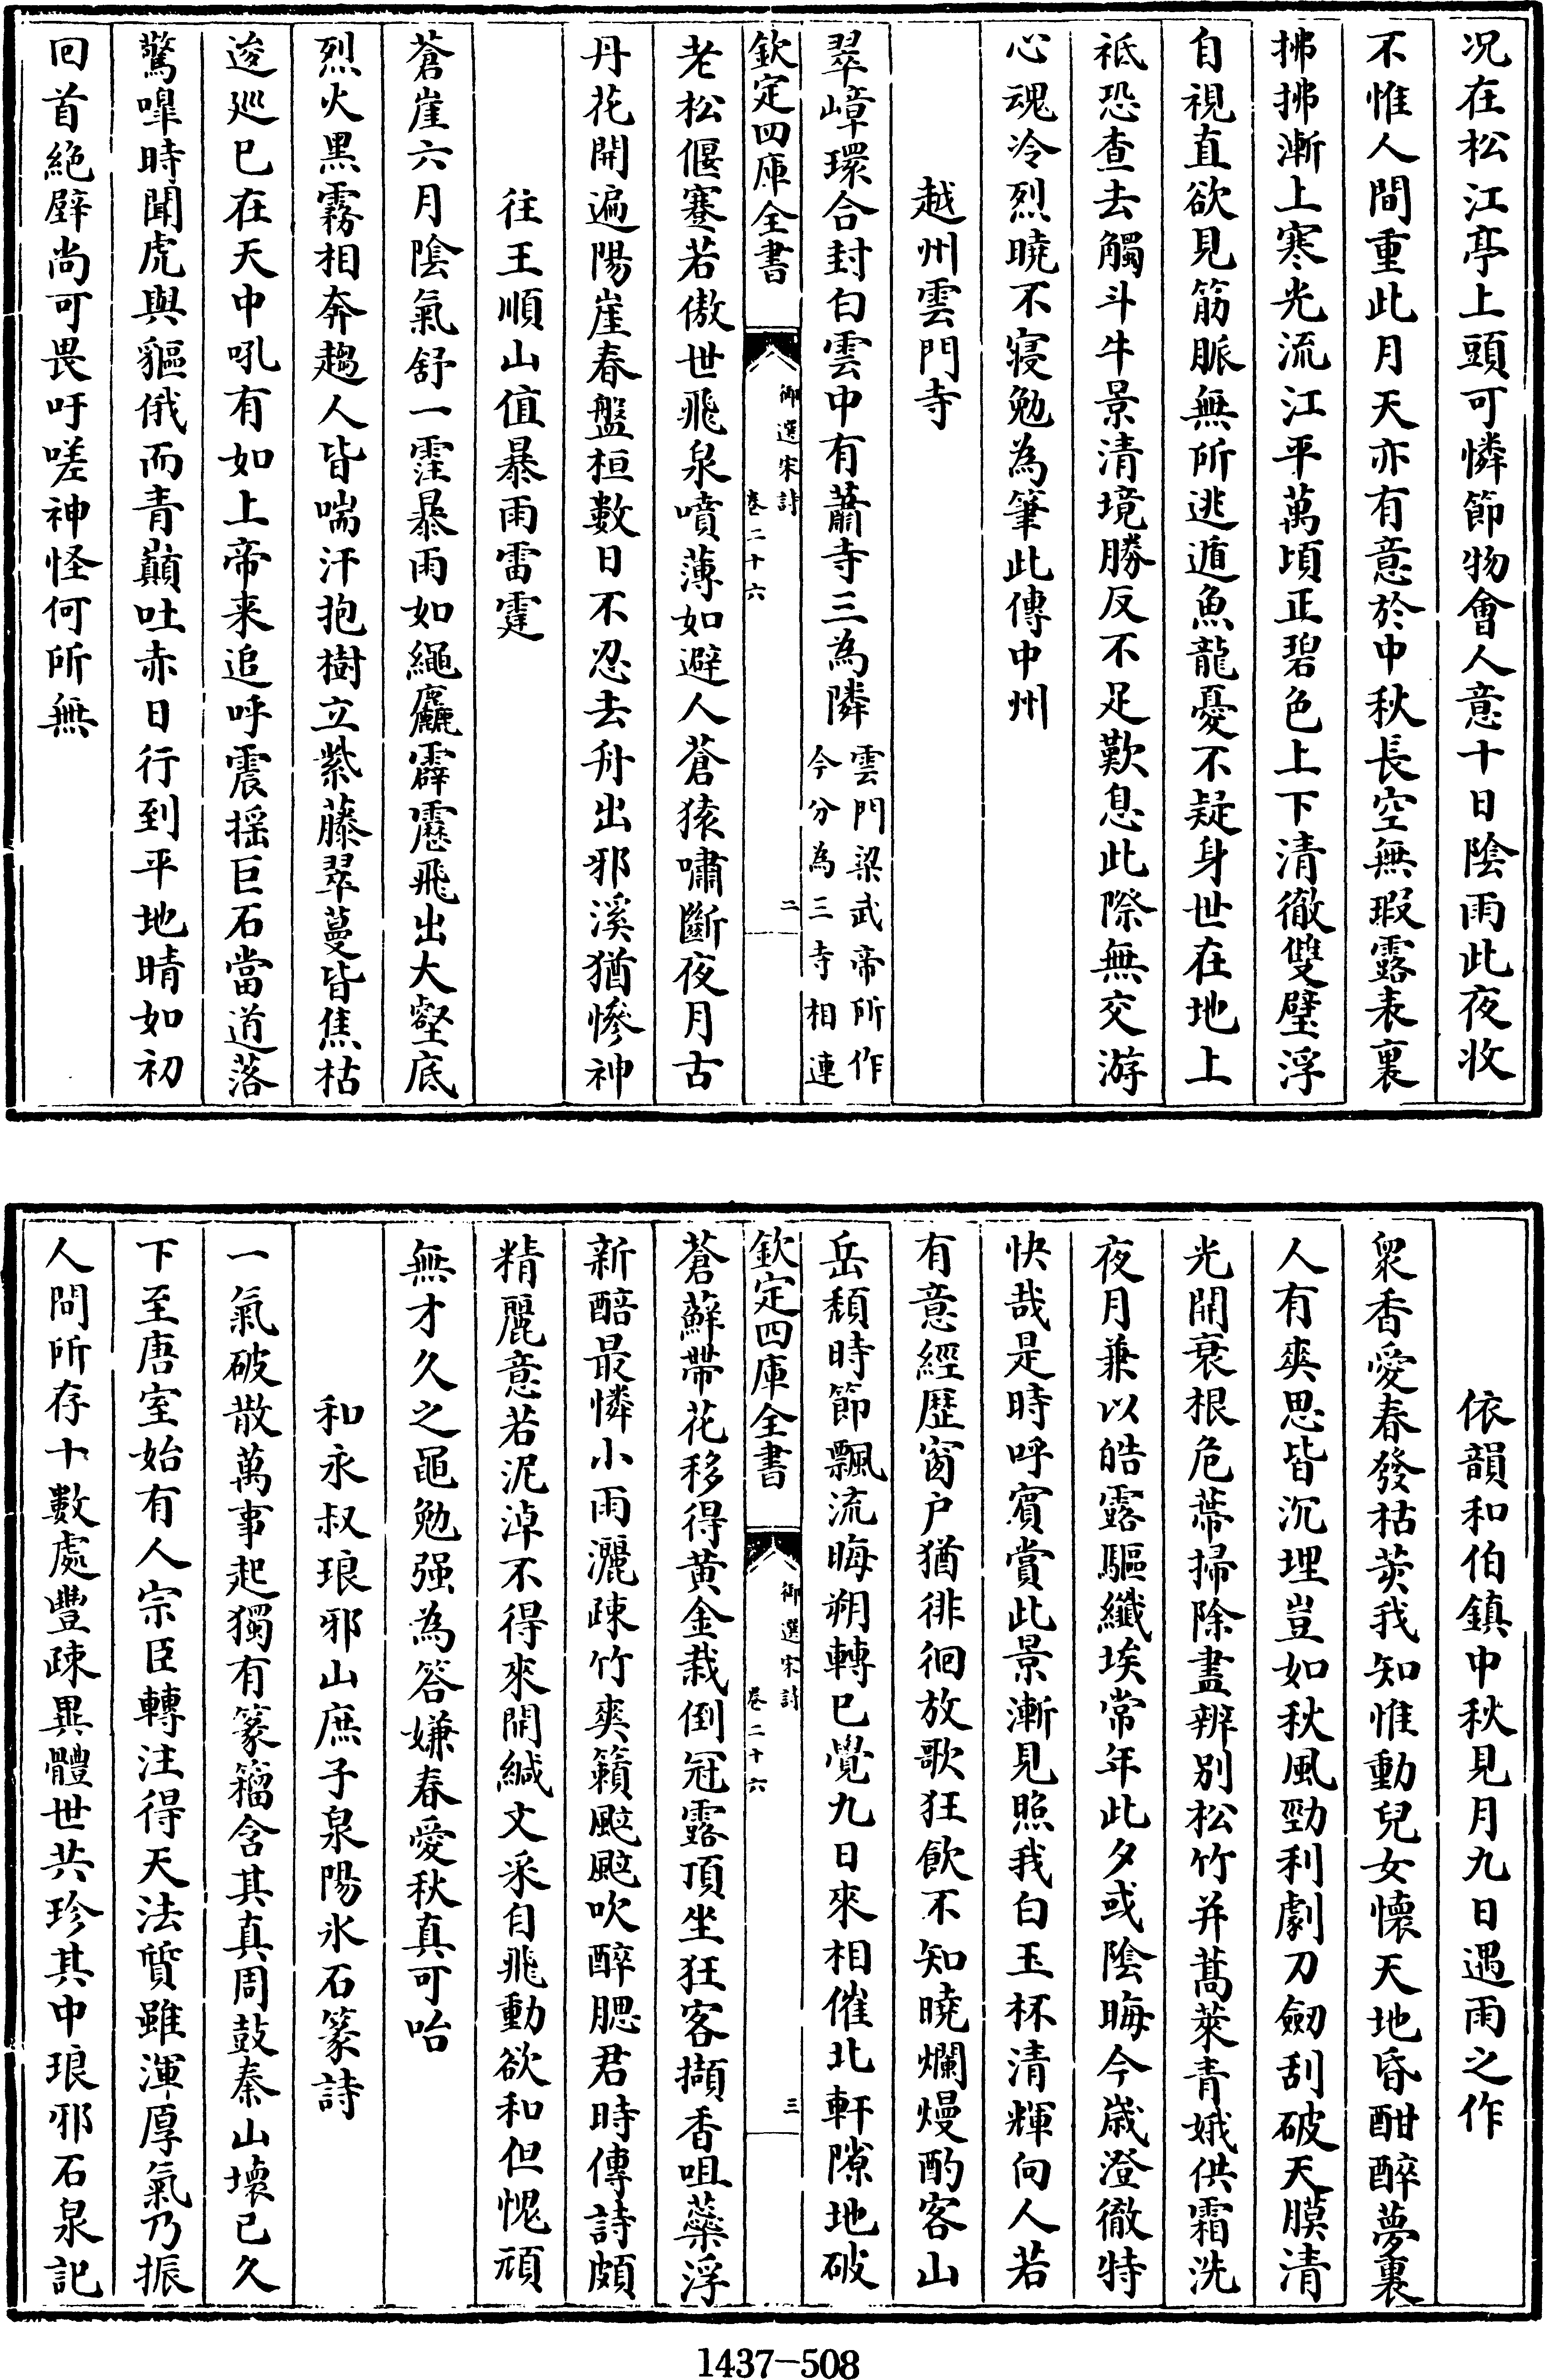 況在松江亭上頭可憐節物會人意十日陰雨此夜收
不惟人間重此月天亦有意於中秋長空無瑕露表裏
拂拂漸上寒光流江平萬頃正碧色上下清徹雙璧浮
自視直欲見筋脈無所逃遁魚龍憂不疑身世在地上
祗恐查去觸斗牛景清境勝反不足歎息此際無交游
心魂冷烈曉不寢勉為筆此傳中州
越州雲門寺
翠嶂環合封白雲中有蕭寺三為隣雲門梁武帝所作今分為三寺相連
欽定四庫全書
御選宋詩
卷二十六
二
老松偃蹇若傲世飛泉噴薄如避人蒼猿嘯斷夜月古
丹花開遍陽崖春盤桓數日不忍去舟出邪溪猶慘神
往王順山值暴雨雷霆
蒼崖六月陰氣舒一霔暴雨如繩麤霹靂飛出大壑底
烈火黑霧相奔趨人皆喘汗抱樹立紫藤翠蔓皆焦枯
逡巡已在天中吼有如上帝来追呼震摇巨石當道落
驚嗥時聞虎與貙俄而青巔吐赤日行到平地晴如初
回首絶壁尚可畏吁嗟神怪何所無
依韻和伯鎮中秋見月九日遇雨之作
衆香愛春發枯荄我知惟動兒女懷天地昏酣醉夢裏
人有爽思皆沉埋豈如秋風勁利劇刀劒刮破天膜清
光開衰根危蔕掃除盡辨别松竹并蒿萊青娥供霜洗
夜月兼以皓露驅纖埃常年此夕或陰晦今嵗澄徹特
快哉是時呼賓賞此景漸見照我白玉杯清輝向人若
有意經歷窗户猶徘徊放歌狂飲不知曉爛熳酌客山
岳頽時節飄流晦朔轉已覺九日來相催北軒隙地破
欽定四庫全書
御選宋詩
卷二十六
三
蒼蘚帶花移得黄金栽倒冠露頂坐狂客擷香咀蘂浮
新醅最憐小雨灑疎竹爽籟颼颼吹醉腮君時傳詩頗
精麗意若泥淖不得來開緘文采自飛動欲和但愧頑
無才久之黽勉强為答嫌春愛秋真可咍
和永叔琅邪山庶子泉陽氷石篆詩
一氣破散萬事起獨有篆籀含其真周鼓秦山壞已久
下至唐室始有人宗臣轉注得天法質雖渾厚氣乃振
人間所存十數處豐疎異體世共珍其中琅邪石泉記
1437-508